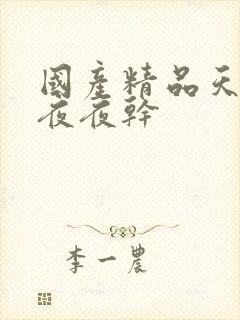 國產精品天
夜夜幹
李一農